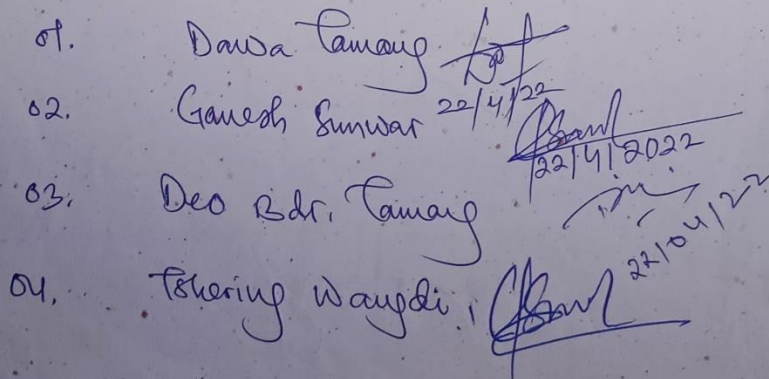 01. Dawa Tamang
02. Ganesh Sunwar 22/4/22
22/4/2022
03. Deo Bdr. Tamang
22/04/22
04. Tshering Wangdi,